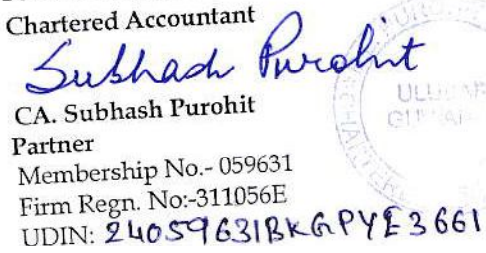 Chartered Accountant
Subhash Purohit
CA. Subhash Purohit
Partner
Membership No.- 059631
Firm Regn. No:-311056E
UDIN: 24059631BKGPYE3661